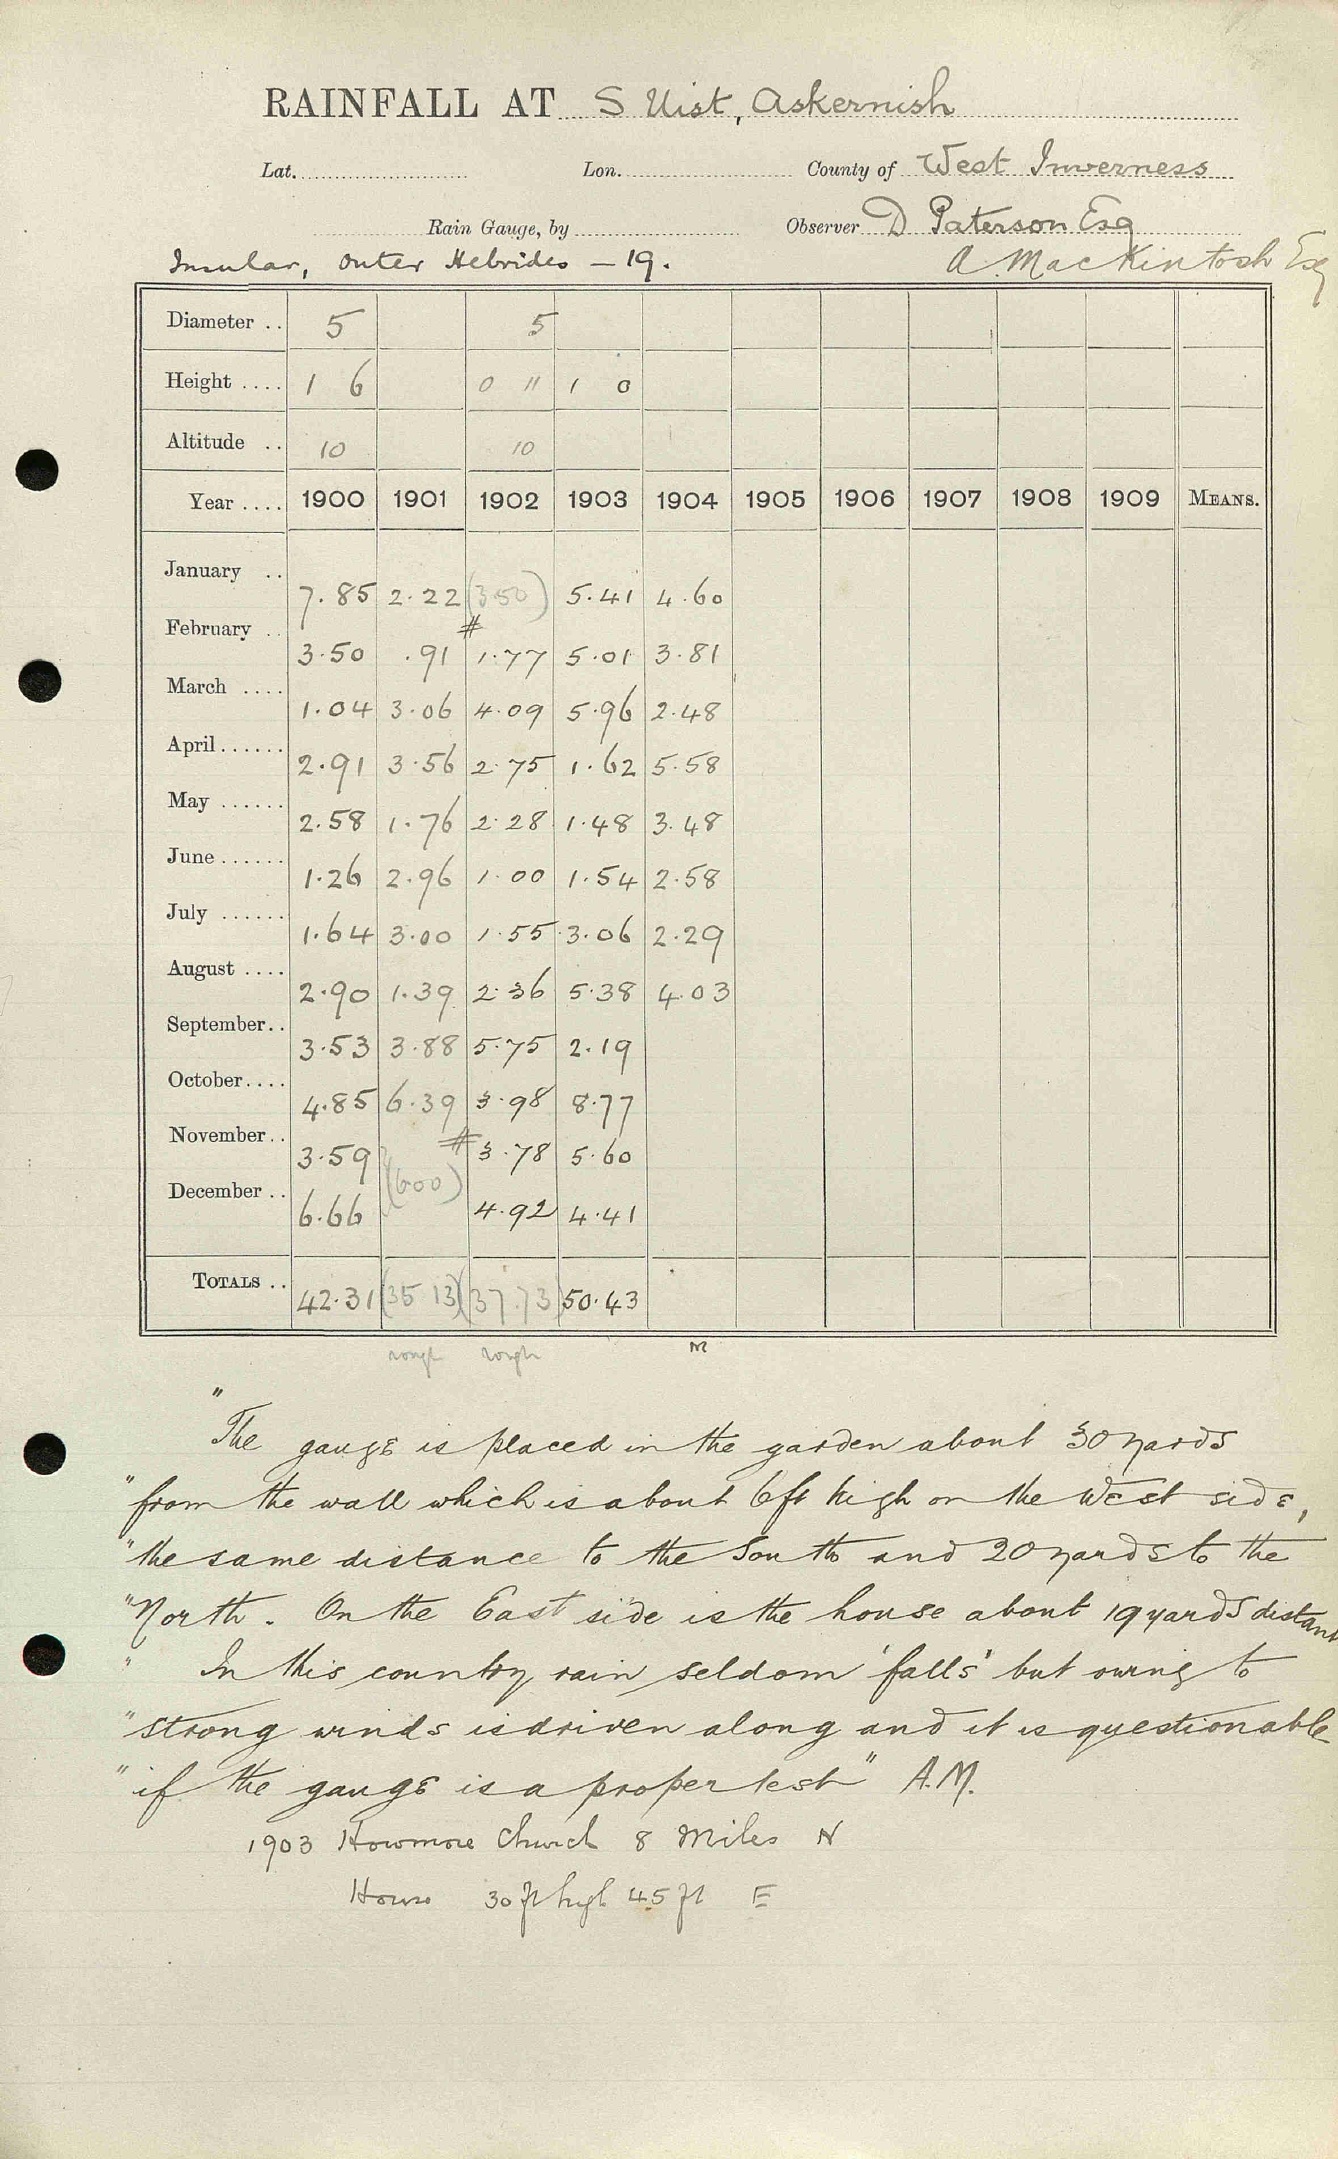 RAINFALL AT S Uist, Askernish
Lat. Lon. County of West Inverness
Rain Gauge, by Observer D Paterson Esq
Insular, Outer Hebrides – 19. A. MacKintosh Esq
Diameter .. 5 5
Height .... 1 6 0 11 1 0
Altitude .. 10 10
Year .... 1900 1901 1902 1903 1904 1905 1906 1907 1908 1909 MEANS.
January .. 7.85 2.22 (3 50) 5.41 4.60
February .. 3.50 .91 # 1.77 5.01 3.81
March .... 1.04 3.06 4.09 5.96 2.48
April...... 2.91 3.56 2.75 1.62 5.58
May ...... 2.58 1.76 2.28 1.48 3.48
June...... 1.26 2.96 1.00 1.54 2.58
July ...... 1.64 3.00 1.55 3.06 2.29
August .... 2.90 1.39 2.36 5.38 4.03
September.. 3.53 3.88 5.75 2.19
October.... 4.85 6.39 3.98 8.77
November.. 3.59 # 3.78 5.60
December .. 6.66 (600) 4.92 4.41
TOTALS .. 42.31 (35 13) (37.73) 50.43
rough rough M
"The gauge is placed in the garden about 30 yards
"from the wall which is about 6ft high on the West side,
"the same distance to the South and 20 yards to the
"North. On the East side is the house about 19 yards distant
" In this country rain seldom 'falls' but owing to
"strong winds is driven along and it is questionable
"if the gauge is a proper test" A.M.
1903 Howmore Church 8 Miles N
House 30 ft high 45 ft E